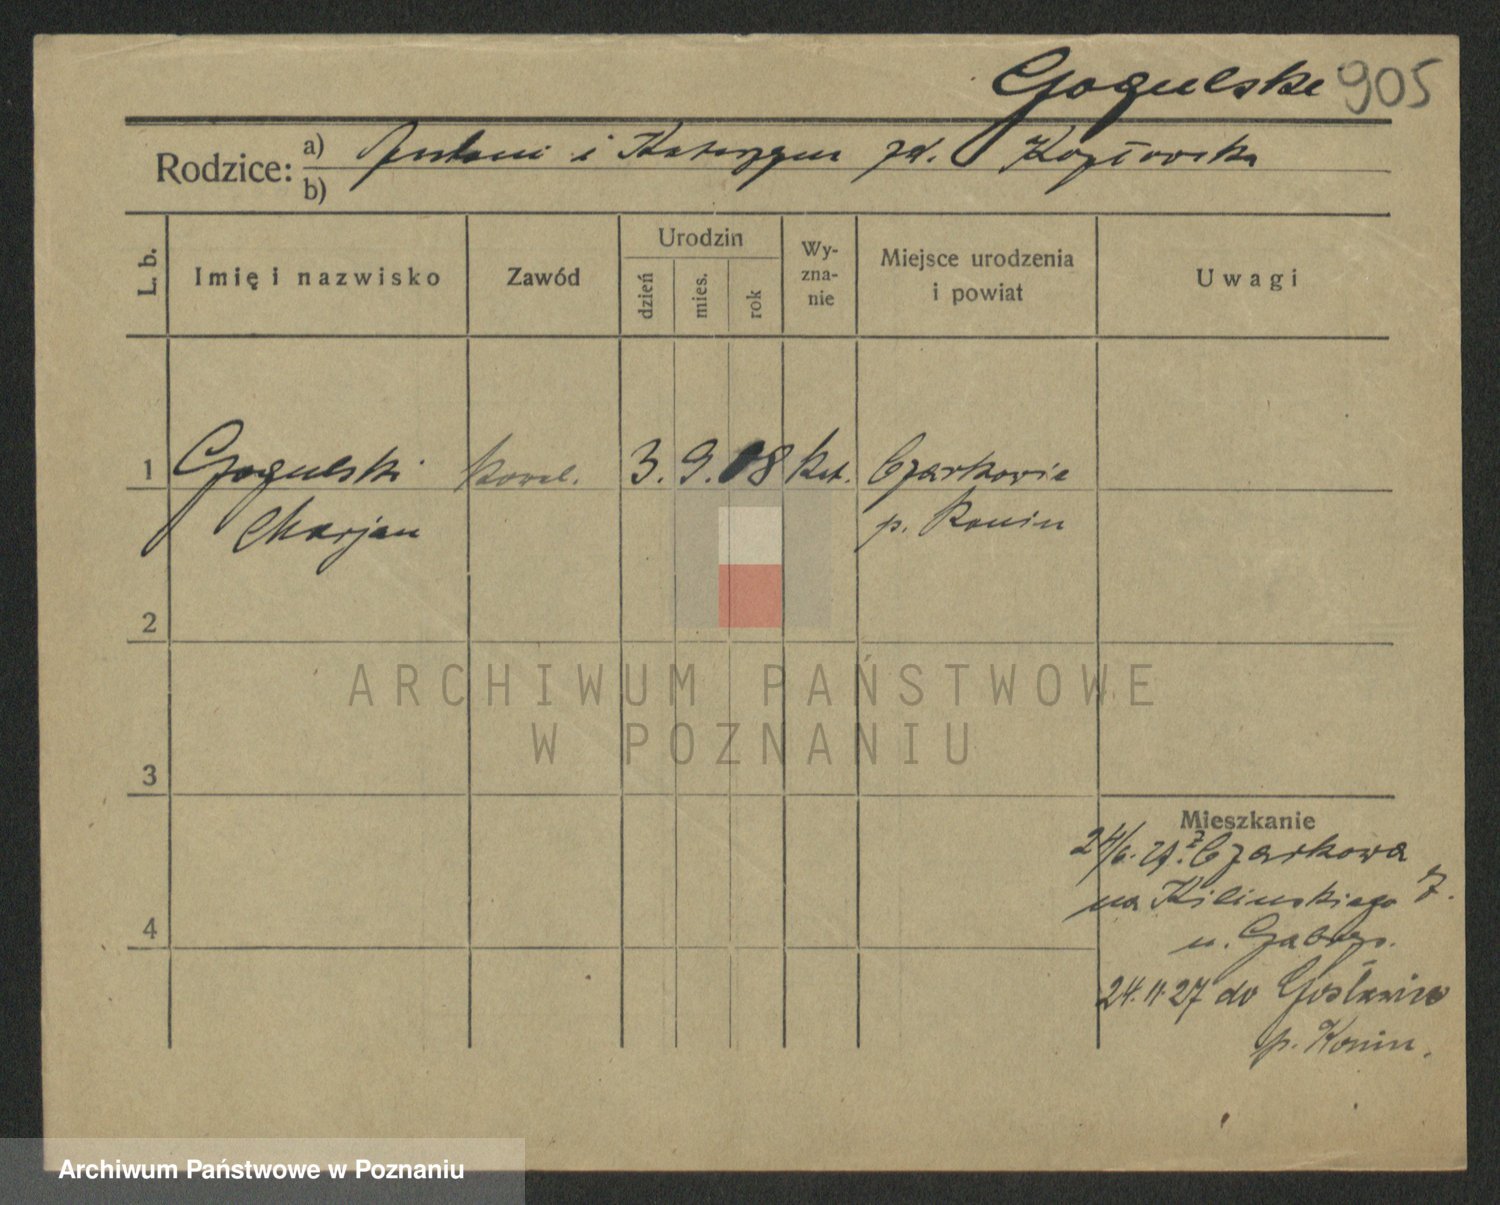 Gogulski 905
Rodzice: a) Antoni i Katarzyna zd. Kozłowska
b)
L. b. Imię i nazwisko Zawód Urodzin dzień mies. rok Wy-zna-nie Miejsce urodzenia i powiat Uwagi
1 Gogulski kowal. 3. 9. 08 kat. Czarkowie
Marjan p. Konin
2
ARCHIWUM PAŃSTWOWE
W POZNANIU
3
Mieszkanie
24/6. z Czarkowa
na Kilinskiego 7.
u.
4
24.11.27 do Gosławice
p. Konin.
Archiwum Państwowe w Poznaniu